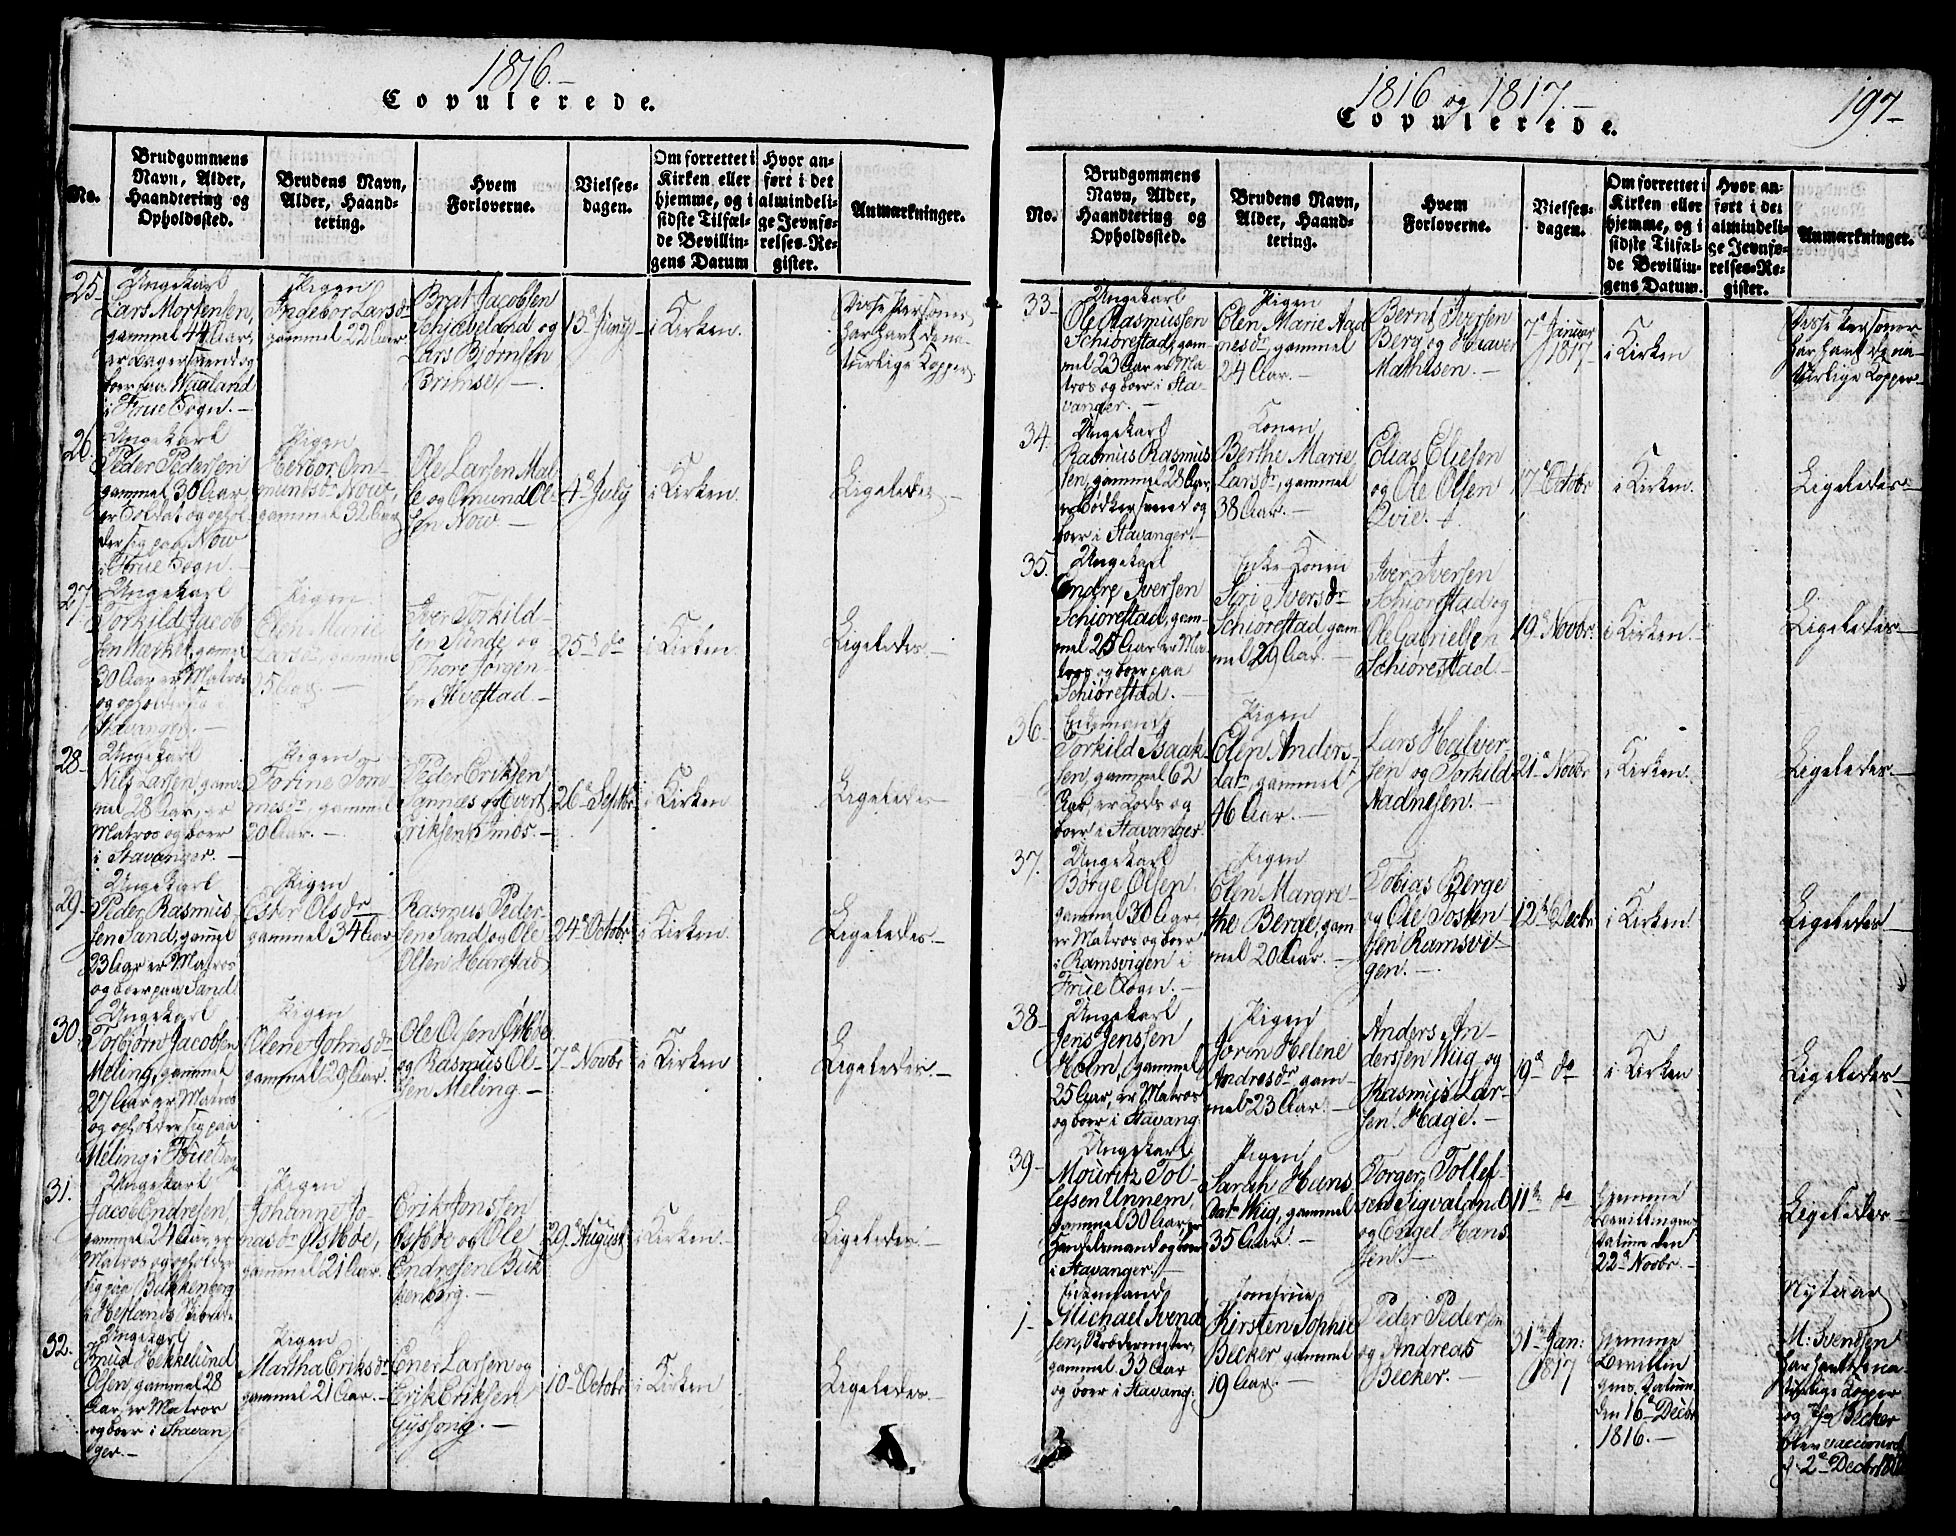 1816.-
Copulerede.
No.
Brudgommens
Navn, Alder,
Haandtering og
Opholdssted.
Brudens Navn,
Alder, Haand-
tering.
Hvem
Forloverne.
Vielses-
dagen.
Om forrettet i
Kirken eller
hjemme, og i
sidste Tilfæl-
de Bevillin-
gens Datum
Hvor an-
ført i det
almindeli-
ge Jevnfø-
relses-Re-
gister.
Anmærkninger.
25-
Ungekarl
Lars Mortensen,
gammel 44 Aar,
boer paa
i Frue Sogn.-
Pigen
Ingebor Larsdr
gammel 22 Aar
Brat Jacobsen
Schiæveland og
Lars Bjørnsen
13d Juny
i Kirken.
Disse Personer
har havt de na-
turlige Kopper
26.
Ungekarl
Peder Pedersen
gammel 30 Aar,
er Soldat og ophol-
der sig paa Now
i Frue Sogn.-
Pigen
Herbor Om-
mundsdr Now,
gammel 32 Aar
Ole Larsen Mal-
le og Omund Ol-
sen Now-
4d July
i Kirken.
Ligeledes-
27-
Ungekarl
Torkild Jacob
sen gamel
30 Aar er Matros
og opholder sig i
Stavanger.-
Pigen
Elen Marie
Larsdr, gammel
Iver Torkild-
sen Sunde og
Thore Jorgen-
sen
25d do
i Kirken.
Ligeledes.-
28-
Ungekarl
Nils Larsen, gam-
mel 28 Aar, er
Matros og boer
i Stavanger.-
Pigen
Torine Tom
mesdr, gammel
20 Aar.-
Peder Eriksen
og Evert
Eriksen
26d Septbr
i Kirken
Ligeledes-
29-
Ungekarl
Peder Rasmus-
sen Sand, gamel
23 Aar er Matros
og boer paa Sand
Pigen
Ester Olsdr
gammel 34 Aar
Rasmus Peder-
sen Sand og Ole
Olsen Harestad
24d Octobr
i Kirken.
Ligeledes.-
30.
Ungekarl
Torbiørn Jacobsen
Meling, gammel
27 Aar er Matros
og opholder sig paa
Meling i Frue Sogn
Pigen
Olene Johnsdr
gammel 29 Aar.
Ole Olsen
og Rasmus Ole
sen Meling-
7d Novbr
i Kirken
Ligeledes.-
31.
Ungekarl
Jacob Endresen,
gammel 24 Aar, er
Matros og opholder
sig paa Bukkenberg
i Hetlands
Pigen
Johanne Jo-
nasdr
gammel 21 Aar.
Erik Jonssen
og Ole
Endresen Buk-
kenberg.-
29d August
i Kirken.-
Ligeledes.-
32.
Ungekarl
Knud Hekkelund
Olsen, gammel 28
Aar, er Matros
og boer i Stavan
ger.-
Pigen
Martha Eriksdr
gammel 21 Aar.-
Ener Larsen og
Erik Eriksen
10d Octobr
i Kirken
Ligeledes.-
1816 og 1817.-
197-
Copulerede.
No.
Brudgommens
Navn, Alder,
Haandtering og
Opholdssted.
Brudens Navn,
Alder, Haand-
tering.
Hvem
Forloverne.
Vielses-
dagen.
Om forrettet i
Kirken eller
hjemme, og i
sidste Tilfæl-
de Bevillin-
gens Datum.
Hvor an-
ført i det
almindeli-
ge Jevnfø-
relses-Re-
gister.
Anmærkninger.
33-
Ungekarl
Ole Rasmussen
Schiørestad, gam-
mel 23 Aar er Ma-
tros og boer i Sta-
vanger.-
Pigen
Elen Marie Aad
nesdr, gammel
24 Aar.-
Bernt Iversen
Berg og Heaver
Mathisen.-
7d Januar
1817-
i Kirken
Disse Personer
har havt de na-
turlige Kopper-
34.
Ungekarl
Rasmus Rasmus
sen, gammel 28 Aar,
er Bødkersvend og
boer i Stavanger.-
Konen
Berthe Marie
Larsdr, gammel
38 Aar.-
Elias Eliesen
og Ole Olsen
Qvie.
17d Octobr
i Kirken.
Ligeledes-
35.
Ungekarl
Endre Iversen
Schiørestad, gam-
mel 25 Aar er Ma-
tros og boer paa
Schiørestad.
Enke Konen
Siri Iversdr
Schiørestad gam-
mel 29 Aar.-
Iver Iversen
Schiørestad og
Ole Gabrielsen
Schiørestad.-
19d Novbr.
i Kirken.-
Ligeledes-
36-
Enkemand
Torkild Isaak-
sen, gammel 62
Aar, er Lods og
boer i Stavanger.
Pigen
Elen Anders-
datr gammel
46 Aar.-
Lars Halver-
sen og Torkild
Aadnesen.-
21d Novbr
i Kirken.
Ligeledes-
37.
Ungekarl
Børge Olsen,
gammel 30 Aar
er Matros og boer
i Ramsvigen i
Frue Sogn.-
Pigen
Elen Margre-
the Berge, gam-
mel 20 Aar.-
Tobias Berge
og Ole Tosten
sen Ramsvi-
gen.-
12d Decbr
i Kirken.
Ligeledes-
38-
Ungekarl
Jens Jenssen
Holm, gammel
25 Aar, er Matros
og boer i Stavang.
Pigen
Joren Helene
Andresdr gam-
mel 23 Aar.-
Anders An-
dersen Wiig og
Rasmus Lar-
sen Hage.-
19d do
i Kirken
Ligeledes-
39-
Ungekarl
Mouritz Tol-
lefsen Unnem,
gammel 30 Aar er
Handelsmand og boer
i Stavanger.-
Pigen
Sarah Hans
datr Wiig, gammel
35 Aar.-
Torger Tollef-
sen Sigvaland
og Engel Hans
sen-
11d do
hjemme
Bevillingens
Datum den
22d Novbr.-
Ligeledes-
Nytaar
1-
Enkemand
Michael Svend
sen,
gammel 33 Aar
og boer i Stavang:
Jomfrue
Kirsten Sophie
Becker gammel
19 Aar.
Peder Pedersen
og Andreas
Becker.-
31d Jan:
1817
hjemme
Bevillin
gens Datum
den 16d Decbr
1816.-
M: Svendsen
har havt de na-
turlige Kopper
og Jfr Becker
blev vaccineret
d. 2d Decbr